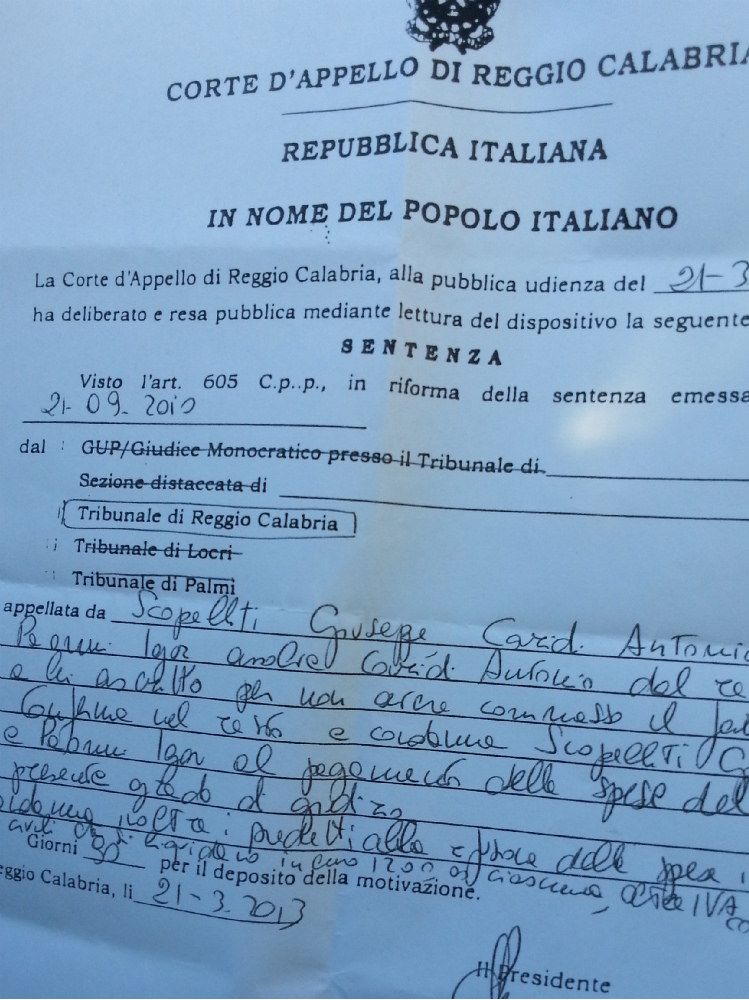 CORTE D'APPELLO DI REGGIO CALABRIA
REPUBBLICA ITALIANA
IN NOME DEL POPOLO ITALIANO
La Corte d'Appello di Reggio Calabria, alla pubblica udienza del 21-3
ha deliberato e resa pubblica mediante lettura del dispositivo la seguente
SENTENZA
Visto l'art. 605 C.p..p., in riforma della sentenza emessa
21-09-2010
dal : GUP/Giudice Monocratico presso il Tribunale di
Sezione distaccata di
Tribunale di Reggio Calabria
Tribunale di Locri
Tribunale di Palmi
appellata da Scopelliti Giuseppe Carid. Antonio
Igor assolve Carid. Antonio dal
a lui ascritto per non avere commesso il
Conferma nel resto e condanna Scopelliti G
e Igor al pagamento delle spese del
presente grado di giudizio
inoltre i predetti alla rifusione delle spese
civili in euro 1200 ciascuna, oltre IVA
Giorni 90 per il deposito della motivazione.
eggio Calabria, li 21-3.2013
Il Presidente